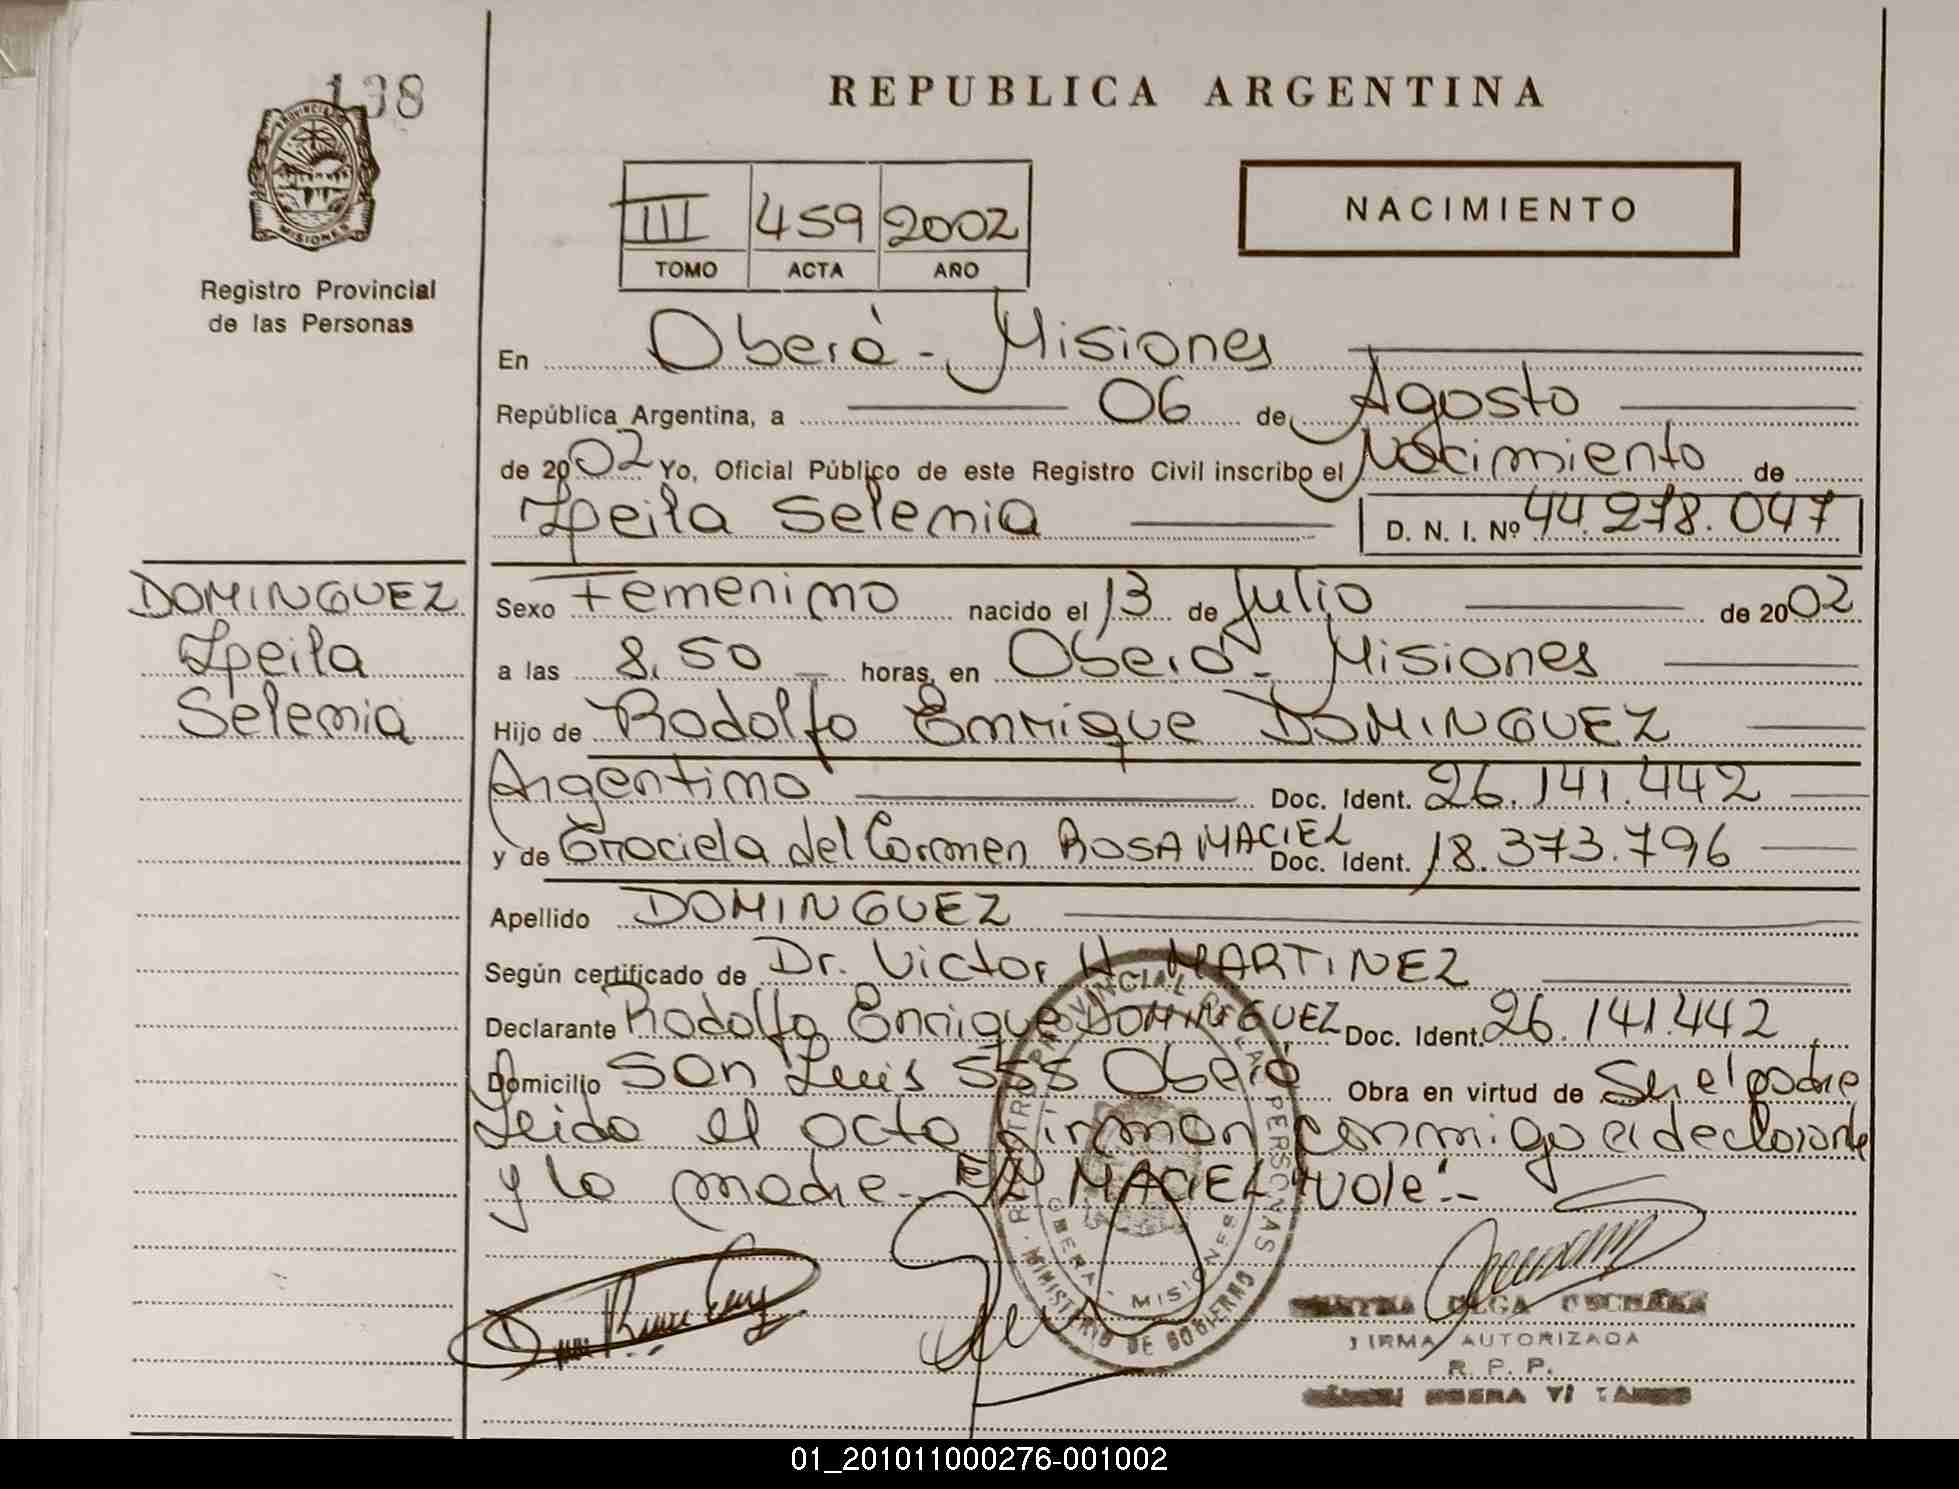 138
REPUBLICA ARGENTINA
PROVINCIA DE
MISIONES
Registro Provincial
de las Personas
III 459 2002
TOMO ACTA AÑO
NACIMIENTO
En Oberá - Misiones
República Argentina, a 06 de Agosto
de 2002 Yo, Oficial Público de este Registro Civil inscribo el Nacimiento de
Selemia D. N. I. Nº 44.278.047
DOMINGUEZ
Selemia
Sexo Femenino nacido el 13 de Julio de 2002
a las 8.50 horas, en Oberá - Misiones
Hijo de Rodolfo Enrrique DOMINGUEZ
Argentino Doc. Ident. 26.141.442
y de Graciela del Carmen ROSA MACIEL Doc. Ident. 18.373.796
Apellido DOMINGUEZ
Según certificado de Dr. Victor H MARTINEZ
Declarante Rodolfo Enrrique DOMINGUEZ Doc. Ident. 26.141.442
Domicilio San Luis 555 Oberá Obra en virtud de Ser el padre
Leida el acta firman conmigo el declarante
y la madre - MACIEL "vale" -
REGISTRO PROVINCIAL DE LAS PERSONAS
OBERA - MISIONES
MINISTERIO DE GOBIERNO
OLGA
FIRMA AUTORIZADA
R. P. P.
01_201011000276-001002